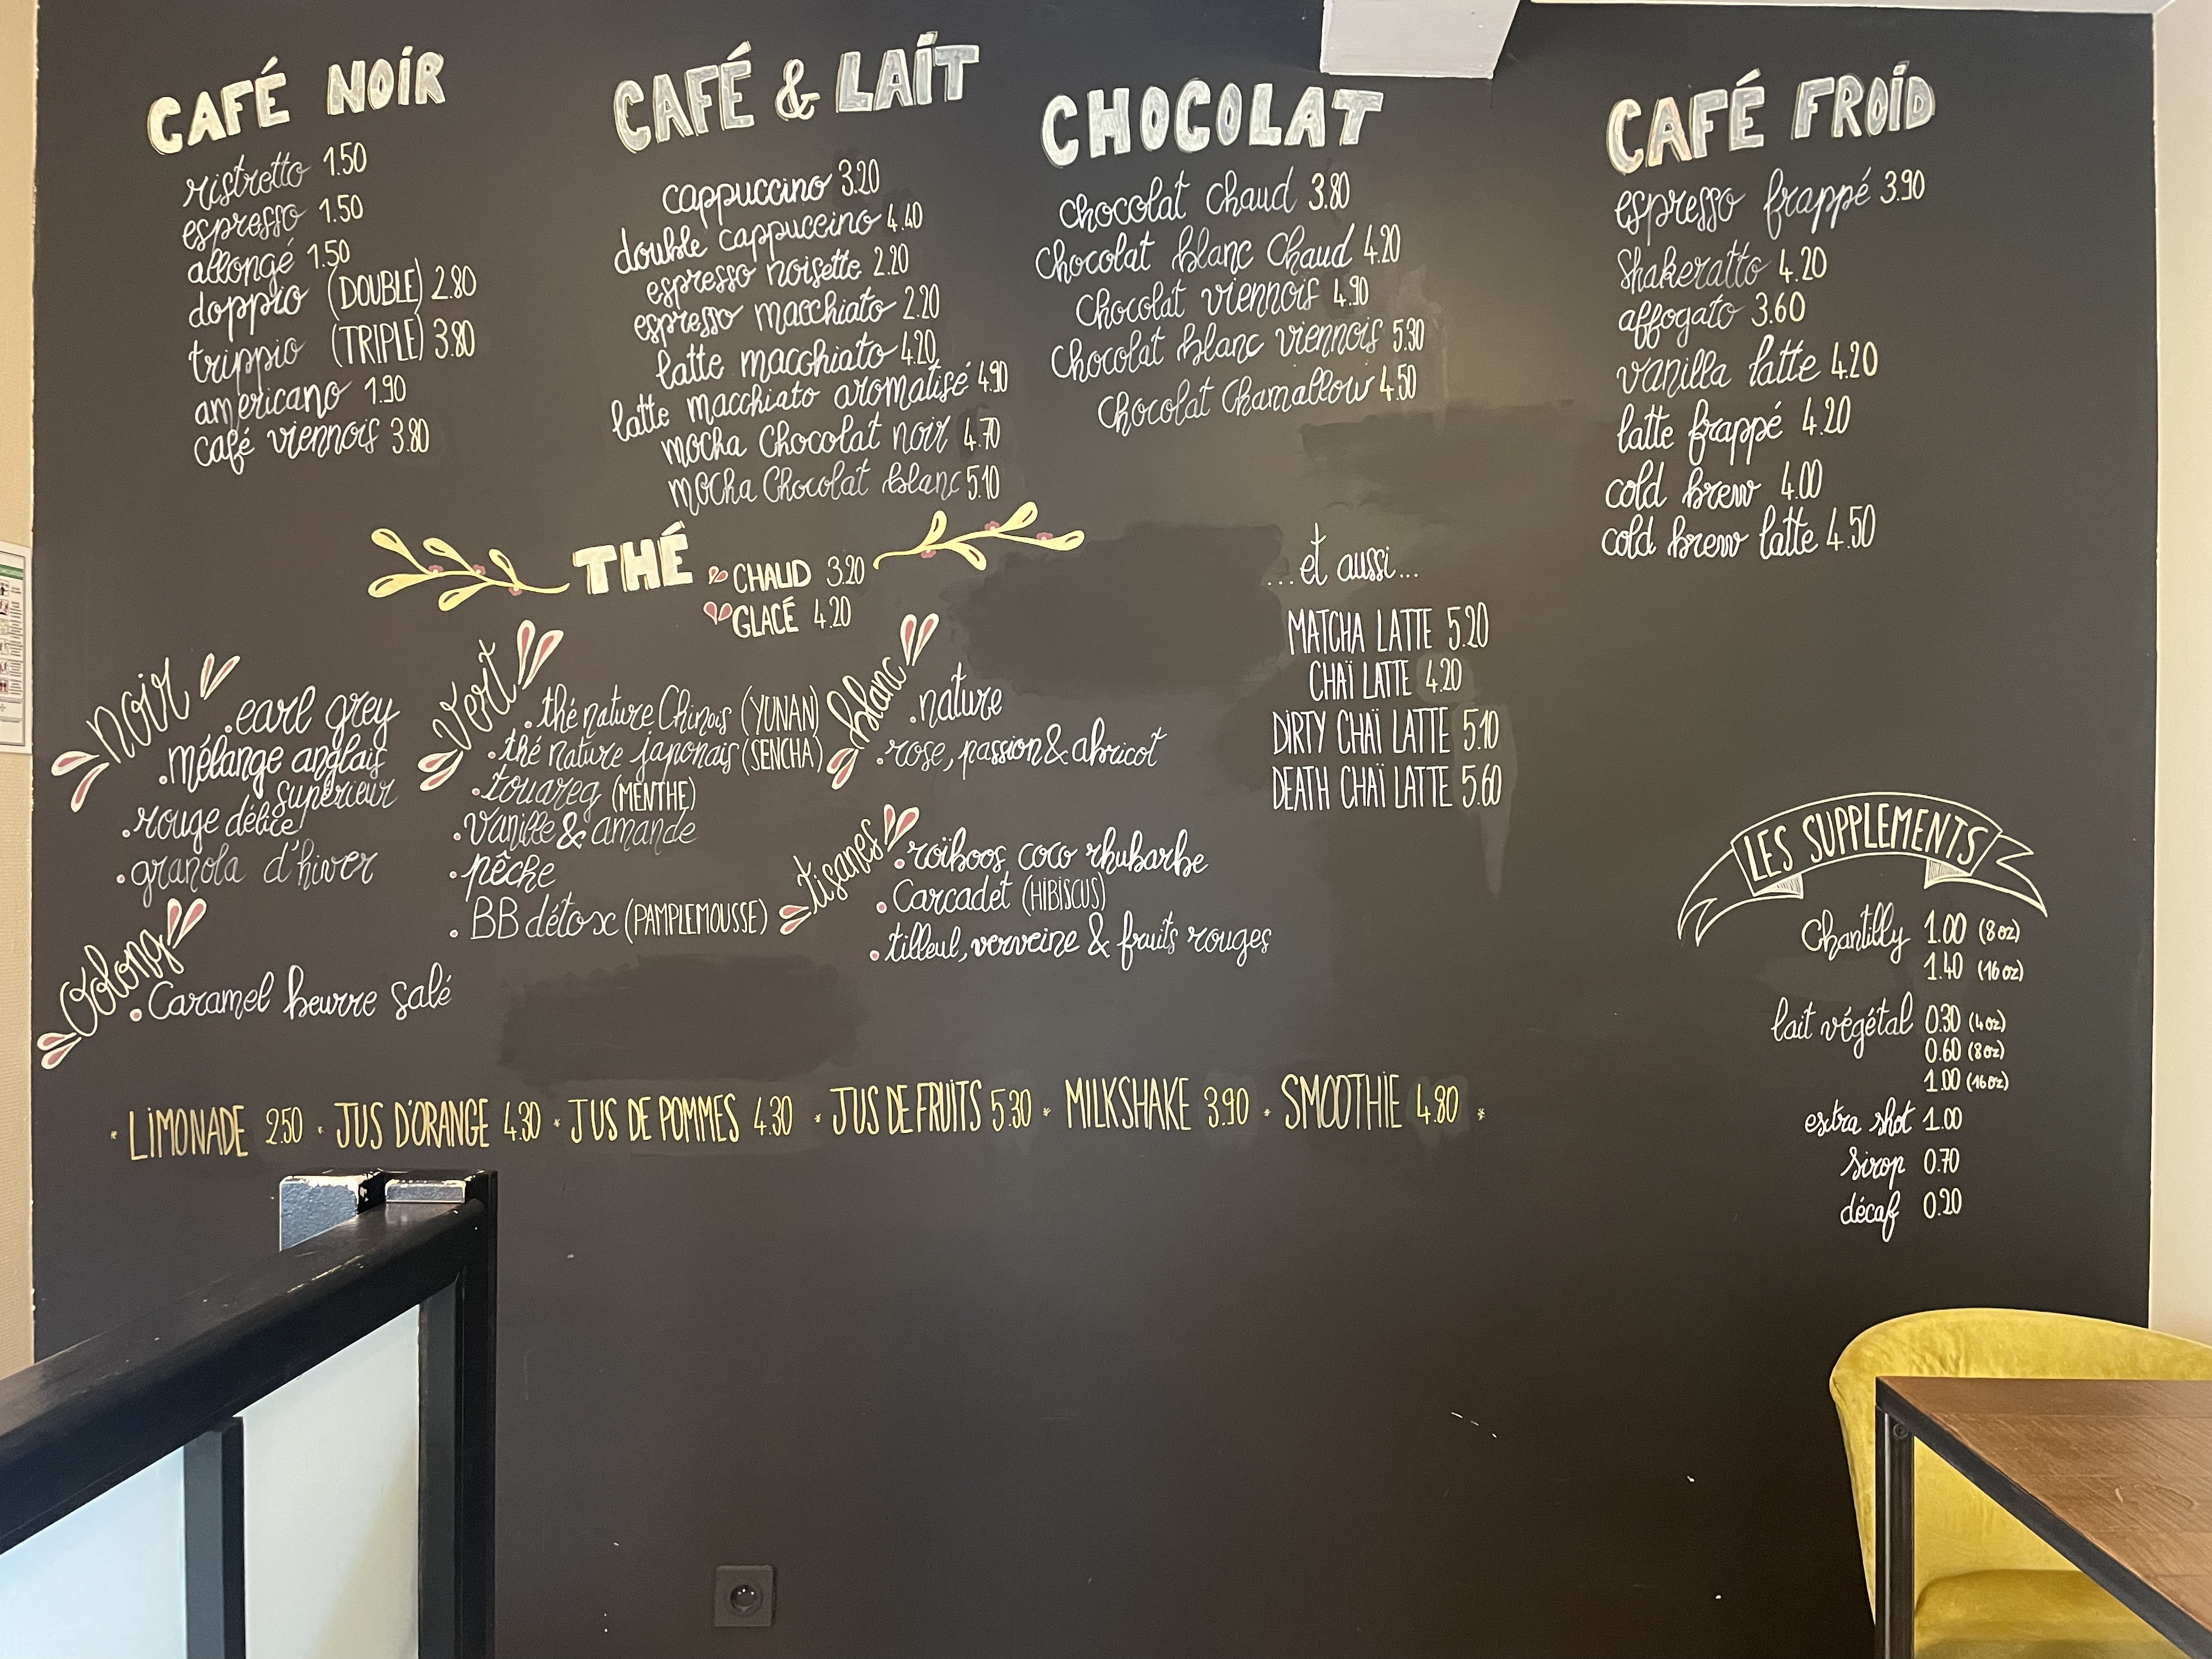 CAFÉ NOIR
ristretto 1.50
espresso 1.50
allongé 1.50
doppio (DOUBLE) 2.80
trippio (TRIPLE) 3.80
americano 1.90
café viennois 3.80
CAFÉ & LAIT
cappuccino 3.20
double cappuccino 4.40
espresso noisette 2.20
espresso macchiato 2.20
latte macchiato 4.20
latte macchiato aromatisé 4.90
mocha chocolat noir 4.70
mocha chocolat blanc 5.10
CHOCOLAT
chocolat chaud 3.80
chocolat blanc chaud 4.20
chocolat viennois 4.90
chocolat blanc viennois 5.30
chocolat chamallow 4.50
CAFÉ FROID
espresso frappé 3.90
shakeratto 4.20
affogato 3.60
vanilla latte 4.20
latte frappé 4.20
cold brew 4.00
cold brew latte 4.50
THÉ
CHAUD 3.20
GLACÉ 4.20
noir
.earl grey
.mélange anglais
supérieur
.rouge délice
.granola d'hiver
vert
.thé nature Chinois (YUNAN)
.thé nature japonais (SENCHA)
.touareg (MENTHE)
.vanille & amande
.pêche
.BB détox (PAMPLEMOUSSE)
blanc
.nature
.rose, passion & abricot
tisanes
.roïboos coco rhubarbe
.Carcadet (HIBISCUS)
.tilleul, verveine & fruits rouges
Oolong
.Caramel beurre salé
...et aussi...
MATCHA LATTE 5.20
CHAÏ LATTE 4.20
DIRTY CHAÏ LATTE 5.10
DEATH CHAÏ LATTE 5.60
LES SUPPLEMENTS
Chantilly 1.00 (8oz)
1.40 (16oz)
lait végétal 0.30 (4oz)
0.60 (8oz)
1.00 (16oz)
extra shot 1.00
sirop 0.70
décaf 0.20
* LIMONADE 2.50 * JUS D'ORANGE 4.30 * JUS DE POMMES 4.30 * JUS DE FRUITS 5.30 * MILKSHAKE 3.90 * SMOOTHIE 4.80 *